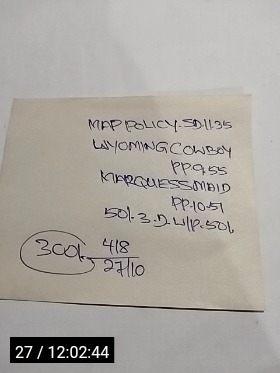 MAP POLICY. SD1135
WYOMING COWBOY
PP.9.55
MARQUESS MAID
PP.10.51
50l. 3. D. W/P. 50l
300l. 4/8
27/10
27 / 12:02:44